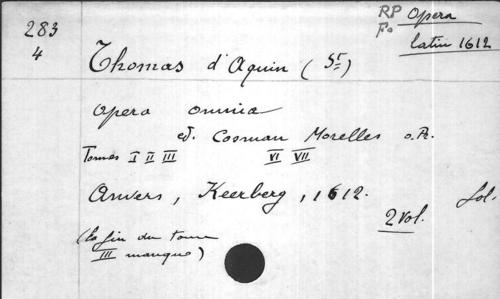 283
4
RP Opera
Fo latin 1612
Thomas d'Aquin (St)
opera omnia
ed. Cosman Morelles o.P.
Tomes I II III VI VII
Anvers, Keerberg, 1612.
2 vol. fol.
(la fin du tome
III manque)